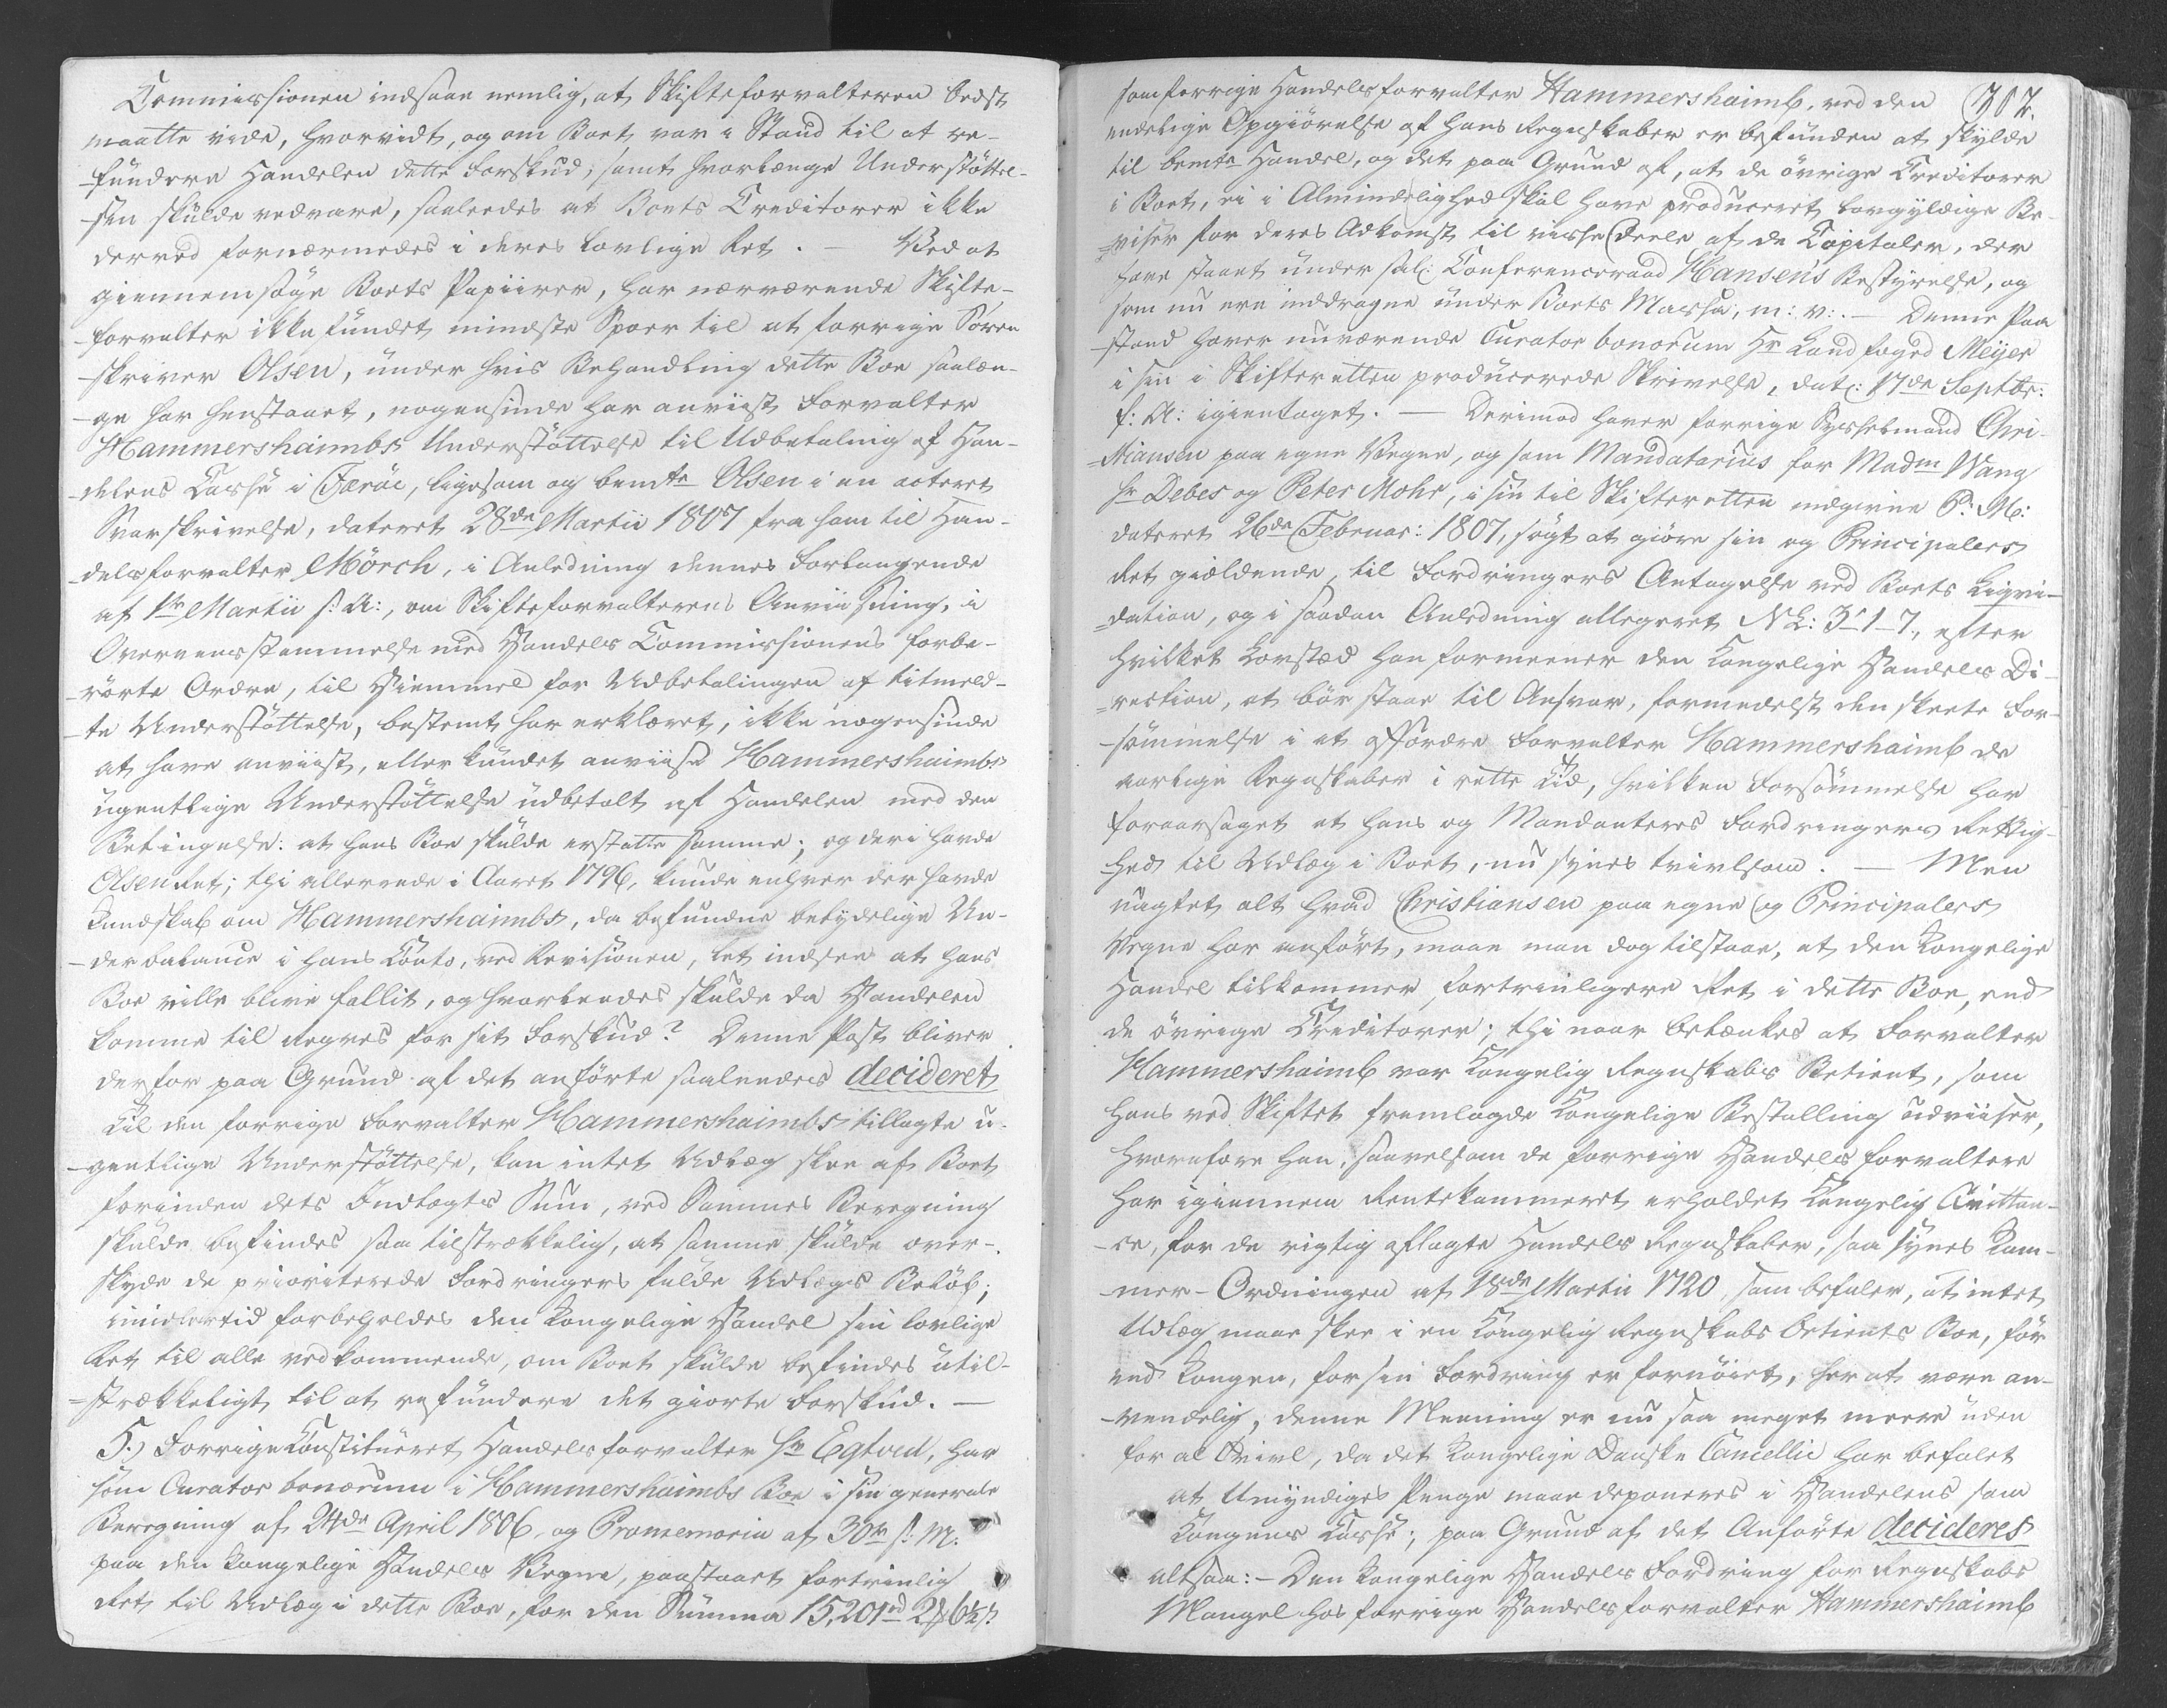 Commissionen indsaae nemlig, at Skifteforvalteren bedst
maatte vide, hvorvidt, og om Boet var i Stand til at re-
-fundere Handelen dette Forskud, samt hvorlænge Understöttel-
-sen skulde vedvare, saaledes at Boets Creditorer ikke
derved fornærmedes i deres lovlige Ret. — Ved at
giennemsöge Boets Papiirer, har nærværende Skifte-
-forvalter ikke fundet mindste Spoer til at forrige Soren-
-skriver Olsen, under hvis Behandling dette Boe saalæn-
-ge har henstaaet, nogensinde har anviist Forvalter
Hammershaimbs Understöttelse til Udbetaling af Han-
-delens Casse i Færöe, ligesom og bemte Olsen i en acteret
Svarskrivelse, dateret 28de Martii 1807 fra ham til Han-
-delsforvalter Mörch, i Anledning dennes Forlangende
af 1ste Martii s: A:, om Skifteforvalterens Anviisning, i
Overeensstemmelse med Handels Commissionens forbe-
-rörte Ordre, til Hiemmel for Udbetalingen af titmeld-
-te Understöttelse, bestemt har erklæret, ikke nogensinde
at have anviist, eller kundet anviise Hammershaimbs
ugentlige Understöttelse udbetalt af Handelen med den
Betingelse: at hans Boe skulde erstatte samme; og deri havde
Olsen Ret; thi allerede i Aaret 1796, kunde enhver der havde
Kundskab om Hammershaimbs, da befundne betydelige Un-
-derbalance i hans Conto, ved Revisionen, let indsee at hans
Boe ville blive fallit, og hvorledes skulde da Handelen
komme til Regres for sit Forskud? Denne Post bliver
derfor paa Grund af det anförte saaledes decideret
Til den forrige Forvalter Hammershaimbs tillagte u-
-gentlige Understöttelse, kan intet Udlæg skee af Boet
forinden dets Indtægts Sum, ved Sammes Beregning
skulde befindes saa tilstrækkelig, at samme skulde over-
skyde de prioriterede Fordringers fulde Udlægs Belöb;
imidlertid forbeholdes den Kongelige Handel sin lovlige
Ret til alle vedkommende, om Boet skulde befindes util-
=strækkeligt til at refundere det giorte Forskud. —
5.) Forrige Constitueret Handelsforvalter Hr Egtved, har
som Curator bonorum i Hammershaimbs Boe i sin generale
Beregning af 24de April 1806, og Promemoria af 30te s: M:
paa den Kongelige Handels Vegne, paastaaet fortrinlig
Ret til Udlæg i dette Boe, for den Summa 15,201rd 2
som forrige Handelsforvalter Hammershaimb, ved den 302.
endelige Opgiörelse af hans Regnskaber er befunden at skylde
til bemte Handel, og det paa Grund af, at de övrige Creditorer
i Boet, ei i Almindelighed skal have produceret lovgyldige Be-
=viser for deres Adkomst til visse Deele af de Capitaler, der
have staaet under sal: Conferenceraad Hansens Bestyrelse, og
som nu ere inddragne under Boets Massa, m: v:. — Denne Paa
-stand haver nuværende Curator bonorum Hr Landfoged Meÿer
i sin i Skifteretten producerede Skrivelse, dat: 17de Septbr:
f: A: igientaget. — Derimod haver forrige Sysselmand Chri-
=stiansen paa egne Vegne, og som Mandatarius for Madm Wang
Hr Debes og Peter Mohr, i sin til Skifteretten indgivne P: M:
dateret 26de Februar: 1807, sögt at giöre sin og Principalers
Ret gieldende, til Fordringers Antagelse ved Boets Liqvi-
=dation, og i saadan Anledning allegeret N L: 3-1-7, efter
hvilket Lovsted han formeener den Kongelige Handels Di-
=rection, at bör staae til Ansvar, formedelst den skeete For-
-sömmelse i at affordre Forvalter Hammershaimb de
aarlige Regnskaber i rette Tid, hvilken Forsömmelse har
foraarsaget at hans og Mandanteres Fordringers Rettig-
-hed til Udlæg i Boet, nu synes tvivlsom. — Men
uagtet alt hvad Christiansen paa egne og Principalers
Vegne har anfört, maae man dog tilstaae, at den Kongelige
Handel tilkommer fortrinligere Ret i dette Boe, end
de övrige Creditorer; thi naar betænkes at Forvalter
Hammershaimb var Kongelig Regnskabs Betient, som
hans ved Skiftet fremlagde Kongelige Bestalling udviiser,
hvorefore han, saavelsom de forrige Handelsforvaltere
har igiennem Rentekammeret erholdet Kongelig Qvittan-
-ce, for de rigtig aflagte Handels Regnskaber, saa synes Kam-
-mer-Ordningen af 18de Martii 1720, som befaler, at intet
Udlæg maae skee i en Kongelig Regnskabs Betients Boe, för
end Kongen, for sin Fordring er fornöiet, her at være an-
-vendelig; denne Meening er nu saa meget meere uden
for al Tvivl, da det Kongelige Danske Cancellie har befalet
at Umyndiges Penge maae deponeres i Handelens som
Kongens Casse; paa Grund af det Anförte decideres
altsaa: - Den Kongelige Handels Fordring for Regnskabs
Mangel hos forrige Handelsforvalter Hammershaimb